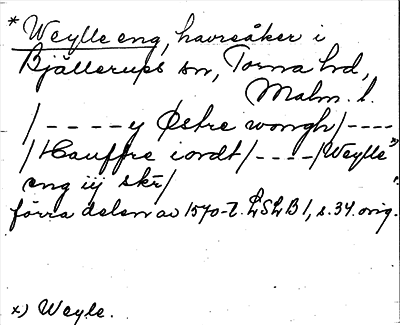 * Weylle eng, havreåker i
Bjällerups sn, Torna hd,
Malm. l.
/ - - - - y Østre wongh / - - - -
/ Hauffre iordt / - - - - / Weylle x)
eng iij skr /
förra delen av 1570-t. LSLB 1, s. 34. orig.
x) Weyle.